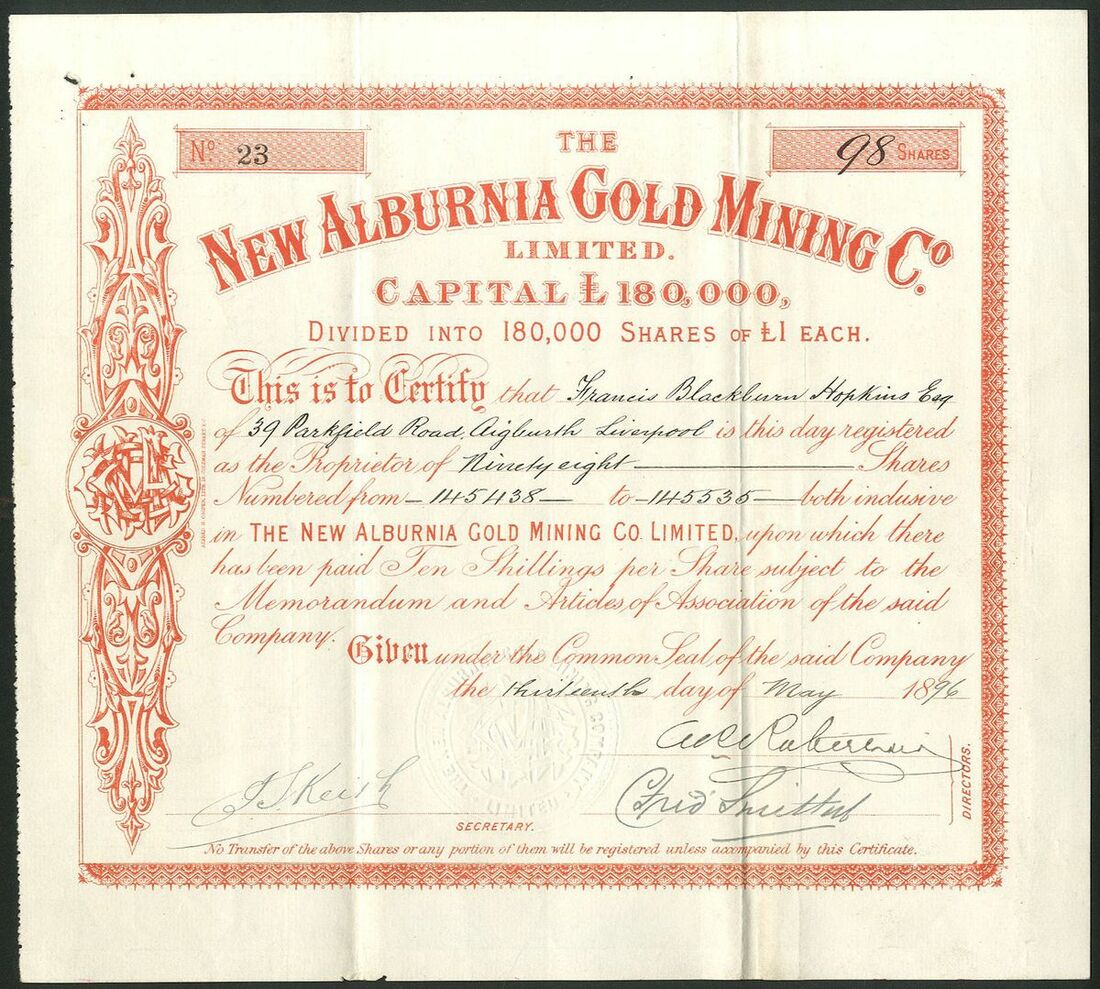 No. 23
98 SHARES
THE
NEW ALBURNIA GOLD MINING Co.
LIMITED.
CAPITAL £180,000,
DIVIDED INTO 180,000 SHARES OF £1 EACH.
This is to Certify that Francis Blackburn Hopkins Esq
of 39 Parkfield Road, Aigburth Liverpool is this day registered
as the Proprietor of Ninety eight Shares
Numbered from 145438 to 145535 both inclusive
in THE NEW ALBURNIA GOLD MINING CO. LIMITED, upon which there
has been paid Ten Shillings per Share subject to the
Memorandum and Articles of Association of the said
Company.
Given under the Common Seal of the said Company
the thirteenth day of May 1896
DIRECTORS.
SECRETARY.
No Transfer of the above Shares or any portion of them will be registered unless accompanied by this Certificate.